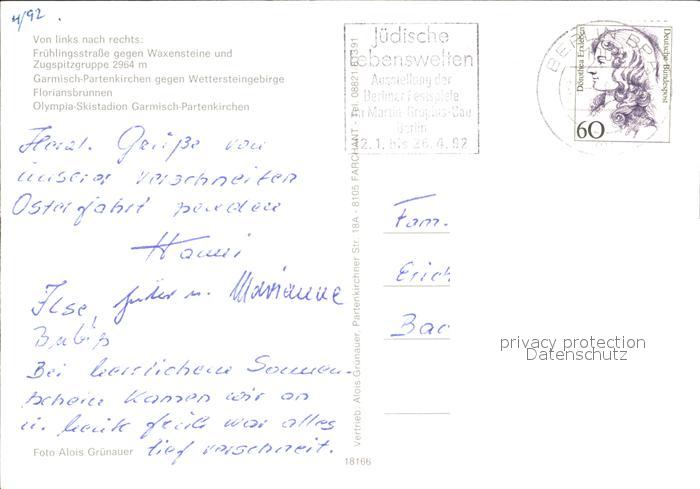 4/92.
Von links nach rechts:
Frühlingsstraße gegen Waxensteine und
Zugspitzgruppe 2964 m
Garmisch-Partenkirchen gegen Wettersteingebirge
Floriansbrunnen
Olympia-Skistadion Garmisch-Partenkirchen
Herzl. Grüße von
unserer verschneiten
Osterfahrt senden
Hanni
Ilse, u. Marianne
Bei herrlichem Sonnen-
schein kamen wir an
u. heute früh war alles
tief verschneit.
Foto Alois Grünauer
Vertrieb: Alois Grünauer, Partenkirchner Str. 18A - 8105 FARCHANT - Tel. 08821/
18166
Jüdische
Lebenswelten
Ausstellung der
Berliner Festspiele
im Martin-Gropius-Bau
Berlin
12.1. bis 26.4.92
BERLIN
Dorothea Erxleben
Deutsche Bundespost
60
Fam.
Erich
Bac
privacy protection
Datenschutz